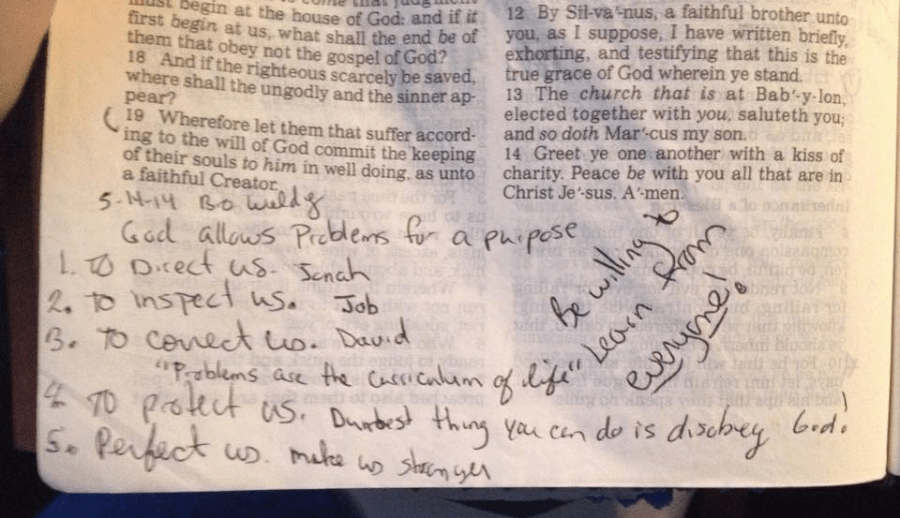 must begin at the house of God: and if it
first begin at us, what shall the end be of
them that obey not the gospel of God?
18 And if the righteous scarcely be saved,
where shall the ungodly and the sinner ap-
pear?
19 Wherefore let them that suffer accord-
ing to the will of God commit the keeping
of their souls to him in well doing, as unto
a faithful Creator.
12 By Sil-va′-nus, a faithful brother unto
you, as I suppose, I have written briefly,
exhorting, and testifying that this is the
true grace of God wherein ye stand.
13 The church that is at Bab′-y-lon,
elected together with you, saluteth you;
and so doth Mar′-cus my son.
14 Greet ye one another with a kiss of
charity. Peace be with you all that are in
Christ Je′-sus. A′-men.
5-14-14 Bo
God allows Problems for a purpose
1. To Direct us. Jonah
2. To inspect us. Job
3. To correct us. David
"Problems are the curriculum of life"
4. To protect us. Dumbest thing you can do is disobey God!
5. Perfect us. make us stronger
Be willing to
Learn from
everyone!